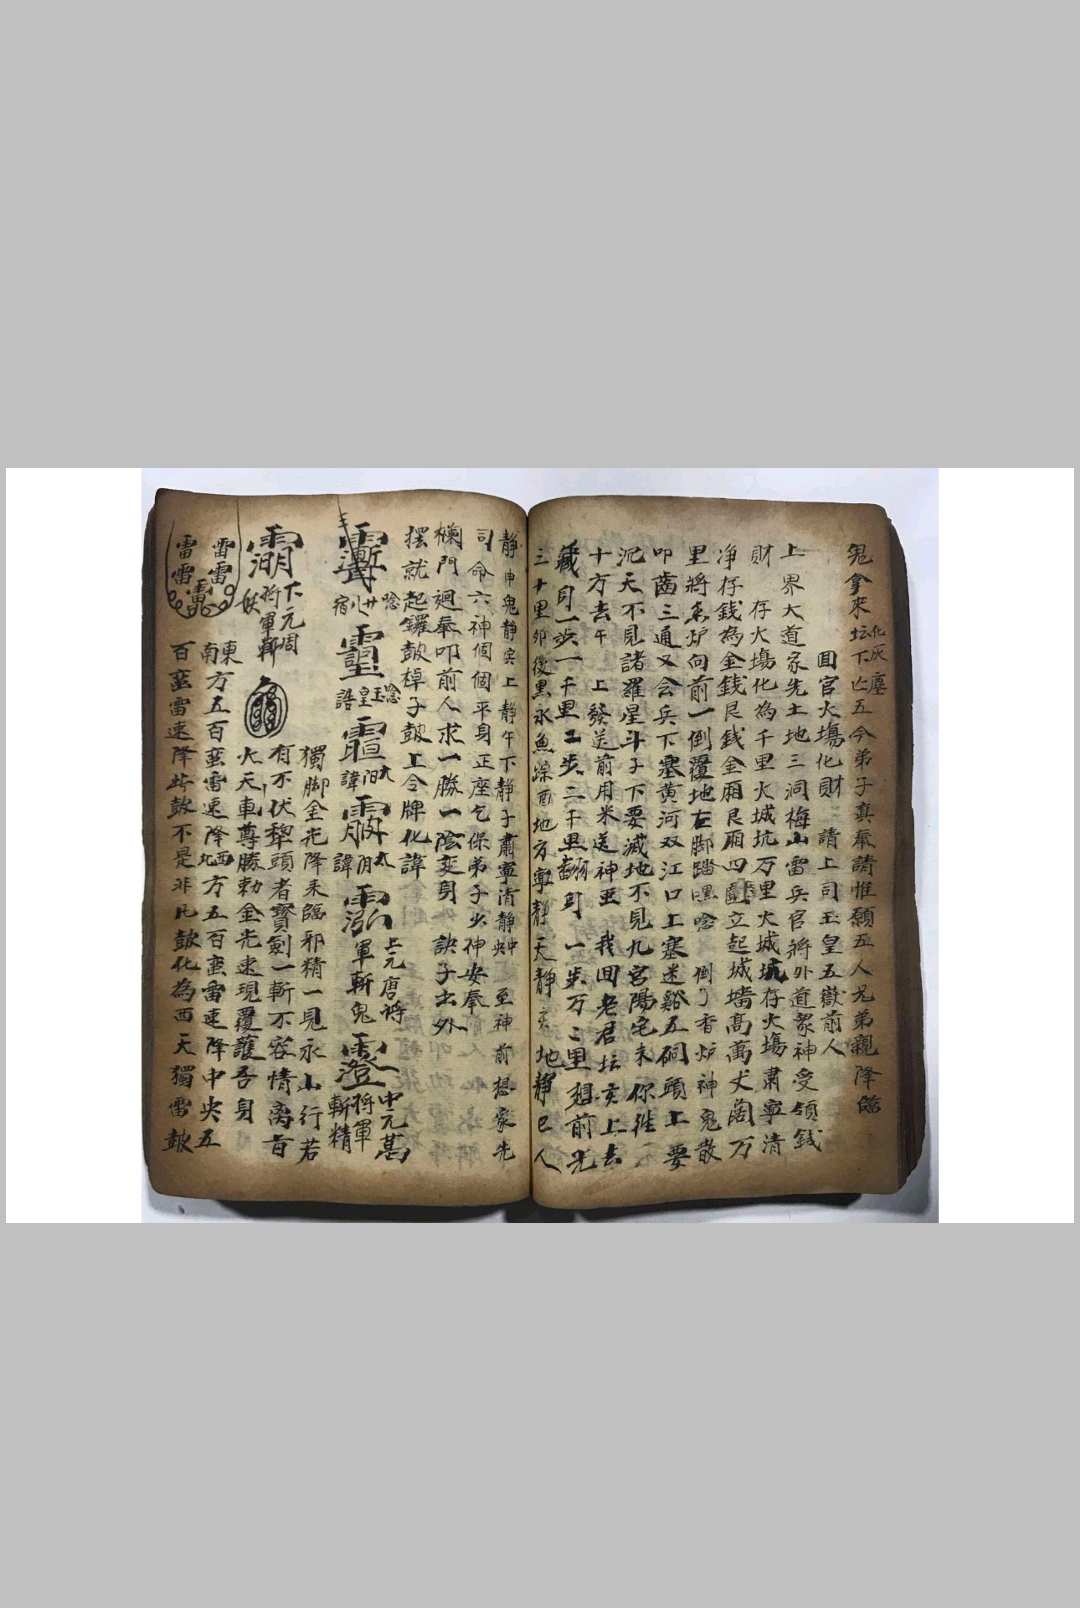 鬼拿來坛下亡五今弟子真奉請惟願五人兄弟親降臨
化灰塵
囬官火塲化財 請上司玉皇五嶽前人
上界大道家先土地三洞梅山雷兵官將外道衆神受領錢
財 存火塲化為千里火城坑万里火城坑存火塲肅寧清
净存錢為金錢艮錢金廂艮廂四立起城墻高萬丈阔万
里將炉向前一倒覆地左脚踏念 倒了香炉神鬼散
叩齒三通又会兵下塞黄河双江口上塞迷谿五硐頭上要
泥天不見諸羅星斗子下要滅地不見九宮陽宅未你徃
十方去午 上發送前用米送神 我囬老君坛上去
藏身一步一千里二步二千里 一步万二里想前光
三十里卯後黒水魚深酉地方寧静天静亥地静巳人
静申鬼静寅上静午下静子肅寧清静中央至神前想家先
司命六神個個平身正座乞保弟子少神安奉
欄門迴奉叩前人求一勝一陰变身 訣子出外
摆就起鑼皷棹子皷上令牌化諱
念廿八宿
念玉皇諱
太阳諱
太阴諱
上元唐將軍斬鬼
中元葛將軍斬精
獨脚金光降来臨邪精一見永山行若
有不伏犂頭者寶劍一斬不容情离首
下元周將軍斬妖
火天車尊勝勅金光速現覆護吾身
雷雷
東南方五百蛮雷速降西北方五百蛮雷速降中央五
雷雷
百蛮雷速降此皷不是非凡皷化為西天獨雷皷